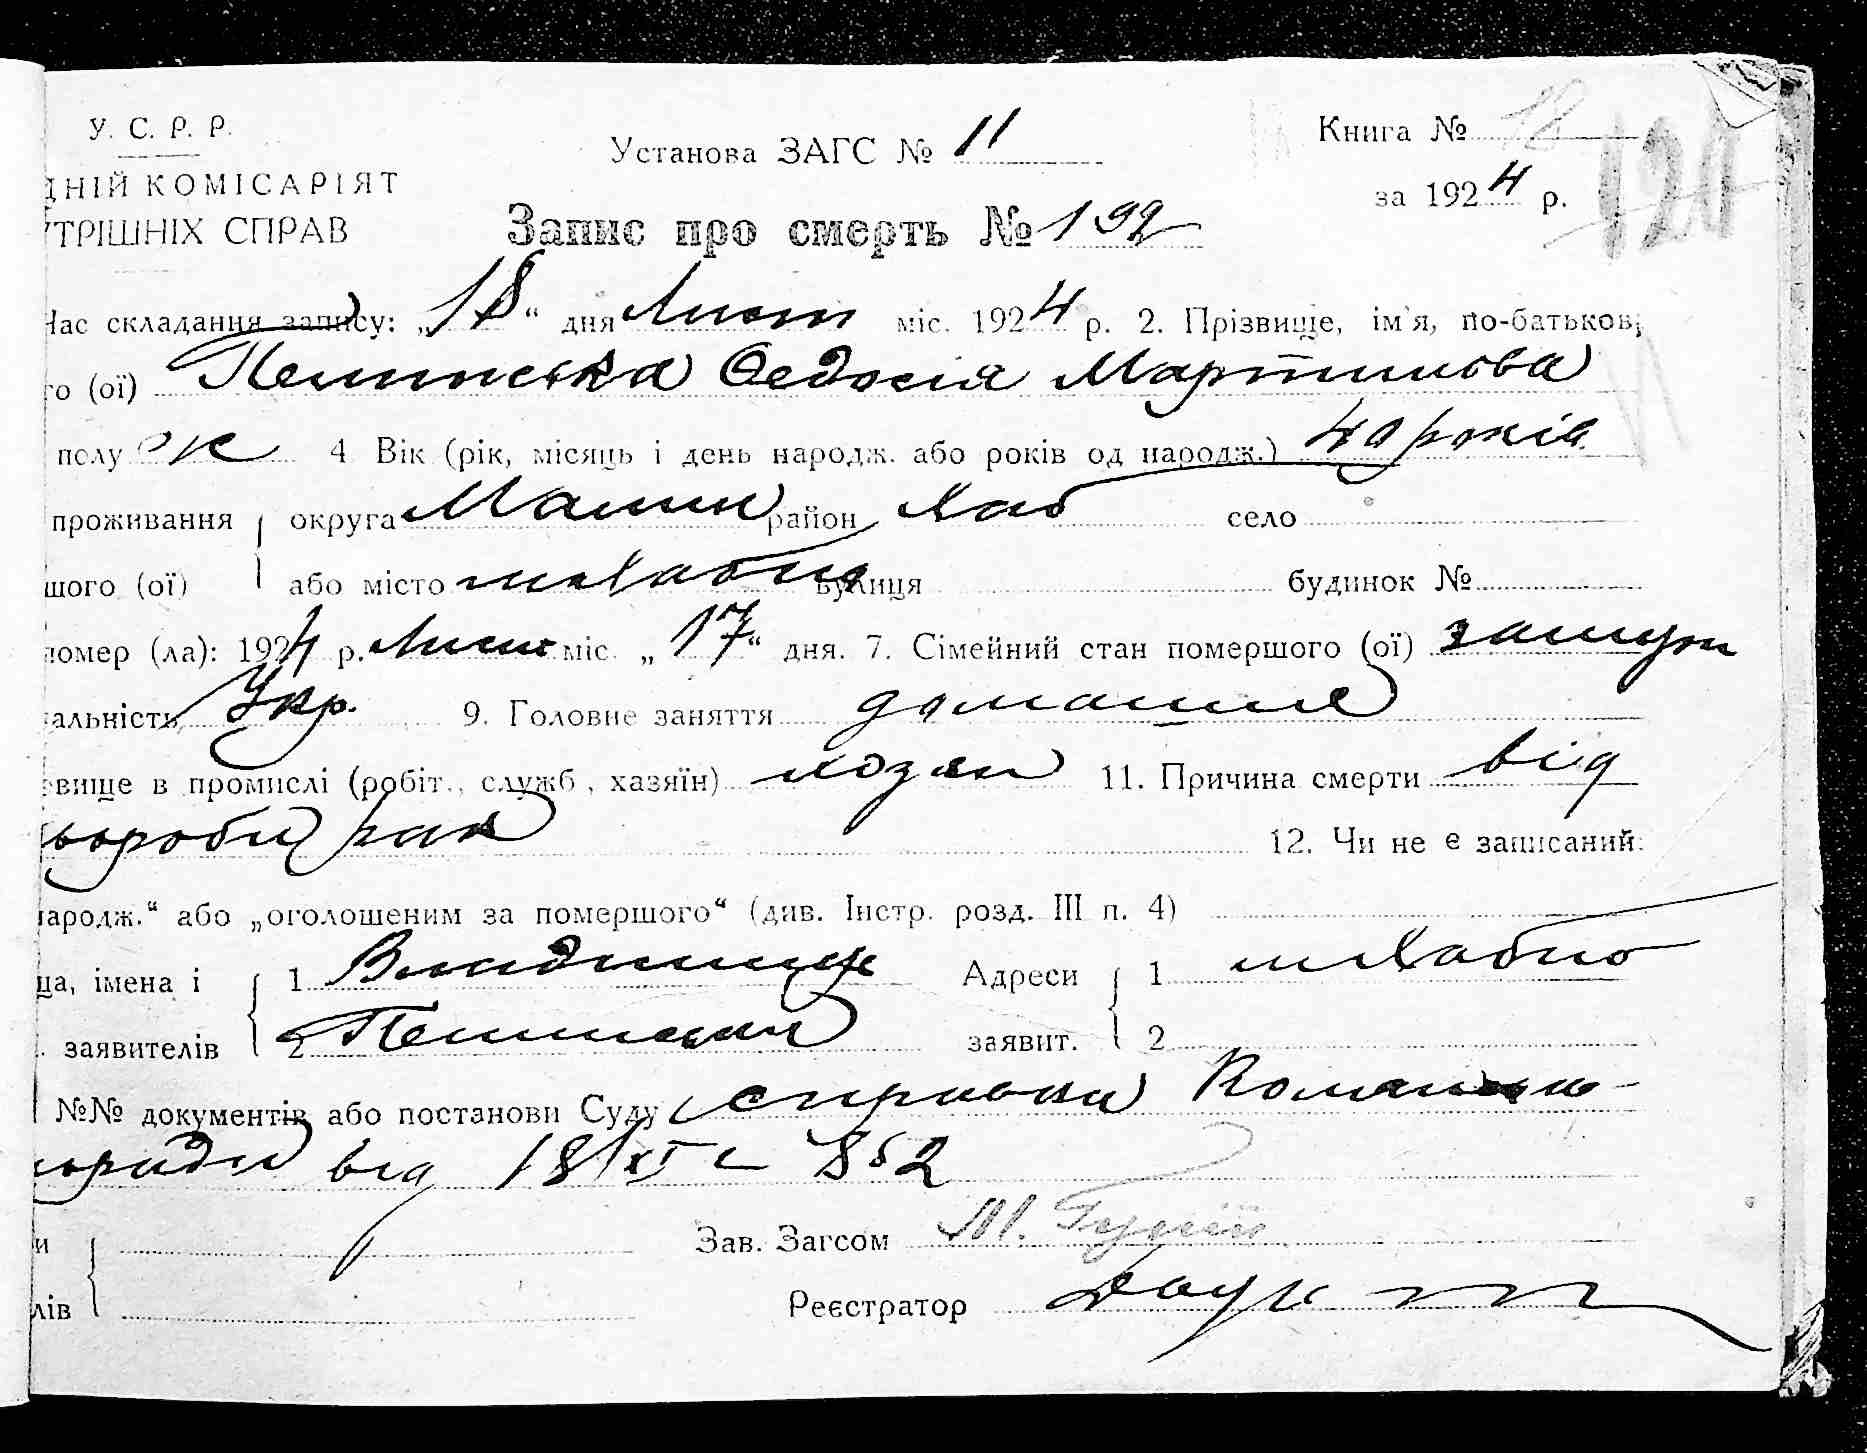 У. С. Р. Р.
ДНІЙ КОМІСАРІЯТ
УТРІШНІХ СПРАВ
Установа ЗАГС № 11
Книга № 12
за 1924 р.
120
Запис про смерть № 192
Час складання запису: „18“ дня Лист міс. 1924 р. 2. Прізвище, ім'я, по-батькові
го (ої) Федосія Мартинова
полу ж 4 Вік (рік, місяць і день народж. або років од народж.) 40 років
проживання округа Малин район Хаб село
шого (ої) або місто м Хабно вулиця будинок №
помер (ла): 1924 р. Лист міс. „17“ дня. 7. Сімейний стан помершого (ої) замужн
альність Укр. 9. Головне заняття домашнє
вище в промислі (робіт., служб, хазяїн) хозяи 11. Причина смерти від
хороби рак 12. Чи не є записаний:
народж.“ або „оголошеним за помершого“ (див. Інстр. розд. III п. 4)
ща, імена і 1 Адреси 1 м Хабно
заявителів 2 заявит. 2
№№ документів або постанови Суду справки
поради від 18/XI с 852
и Зав. Загсом М.
лів Реєстратор